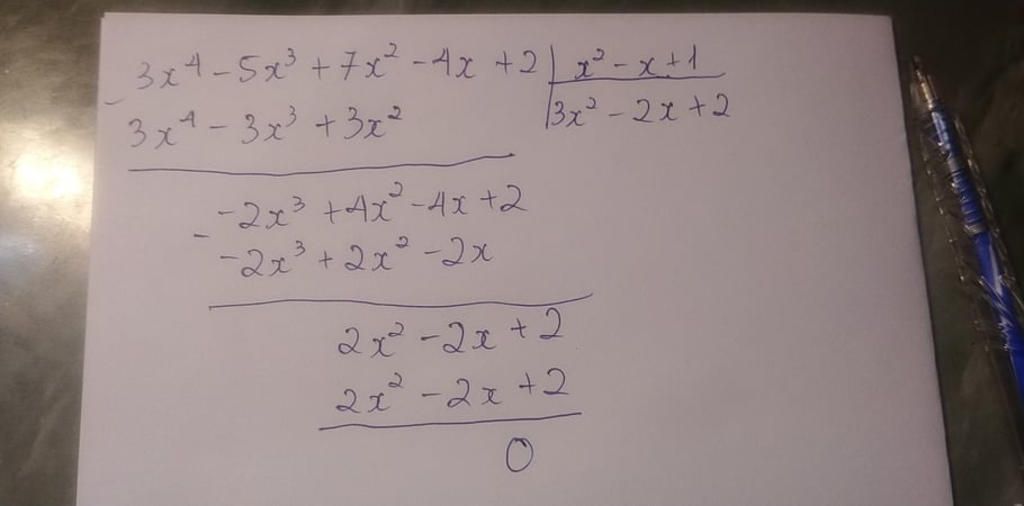 3x⁴ - 5x³ + 7x² - 4x + 2 | x² - x + 1
- 3x⁴ - 3x³ + 3x² | 3x² - 2x + 2
-2x³ + 4x² - 4x + 2
- -2x³ + 2x² - 2x
2x² - 2x + 2
2x² - 2x + 2
0